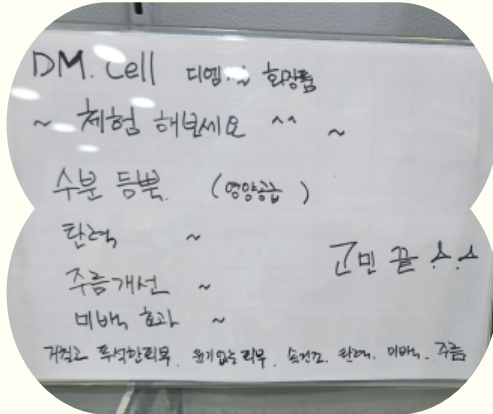 DM. Cell 디엠.~ 화장품
~ 체험 해보세요 ^^ ~
수분 듬뿍. (영양공급)
탄력 ~
고민 끝 ^.^
주름개선 ~
미백 효과 ~
거칠고 푸석한피부. 윤기없는피부. 속건조. 탄력. 미백. 주름